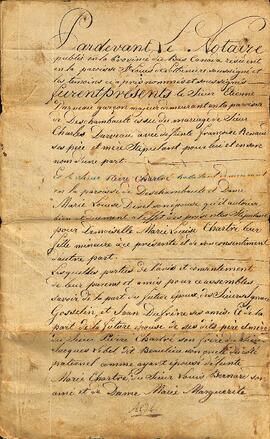 Pardevant Le Notaire
publics en la Province du Bas Canada résident
en la paroisse St Louis de Lotbinière soussigné et
les témoins cy après nommés et soussignés
furent présents le Sieur Etienne
Darveau garçon majeur demeurant en la paroisse
de Deschambault issu du mariage de Sieur
Charles Darveau avec défunte Françoise Renaud
ses père et mère stipulant pour lui et en son
nom d'une part
Et le Sieur Pierre Chartré habitant demeurant
en la paroisse de Deschambault et Dame
Marie Louise son épouse qu'il autorise
bien à l'effet des présentes stipulant
pour Demoiselle Marie Louise Chartré leur
fille mineure à ce présente et de son consentement
d'autre part.
Lesquelles parties de l'avis et consentement
de leurs parens et amis pour ce assemblés
savoir de la part du futur époux, des Sieurs
Gosselin et Jean Dufresne ses amis Et de la
part de la future épouse de ses dits père et mère
du Sieur Pierre Chartré son frère du Sieur
Jacques Lebel dit Beaulieu son oncle du côté
paternel comme ayant épousé défunte
Marie Chartré du Sieur Louis Bernard son
ami et de Dame Marie Marguerite